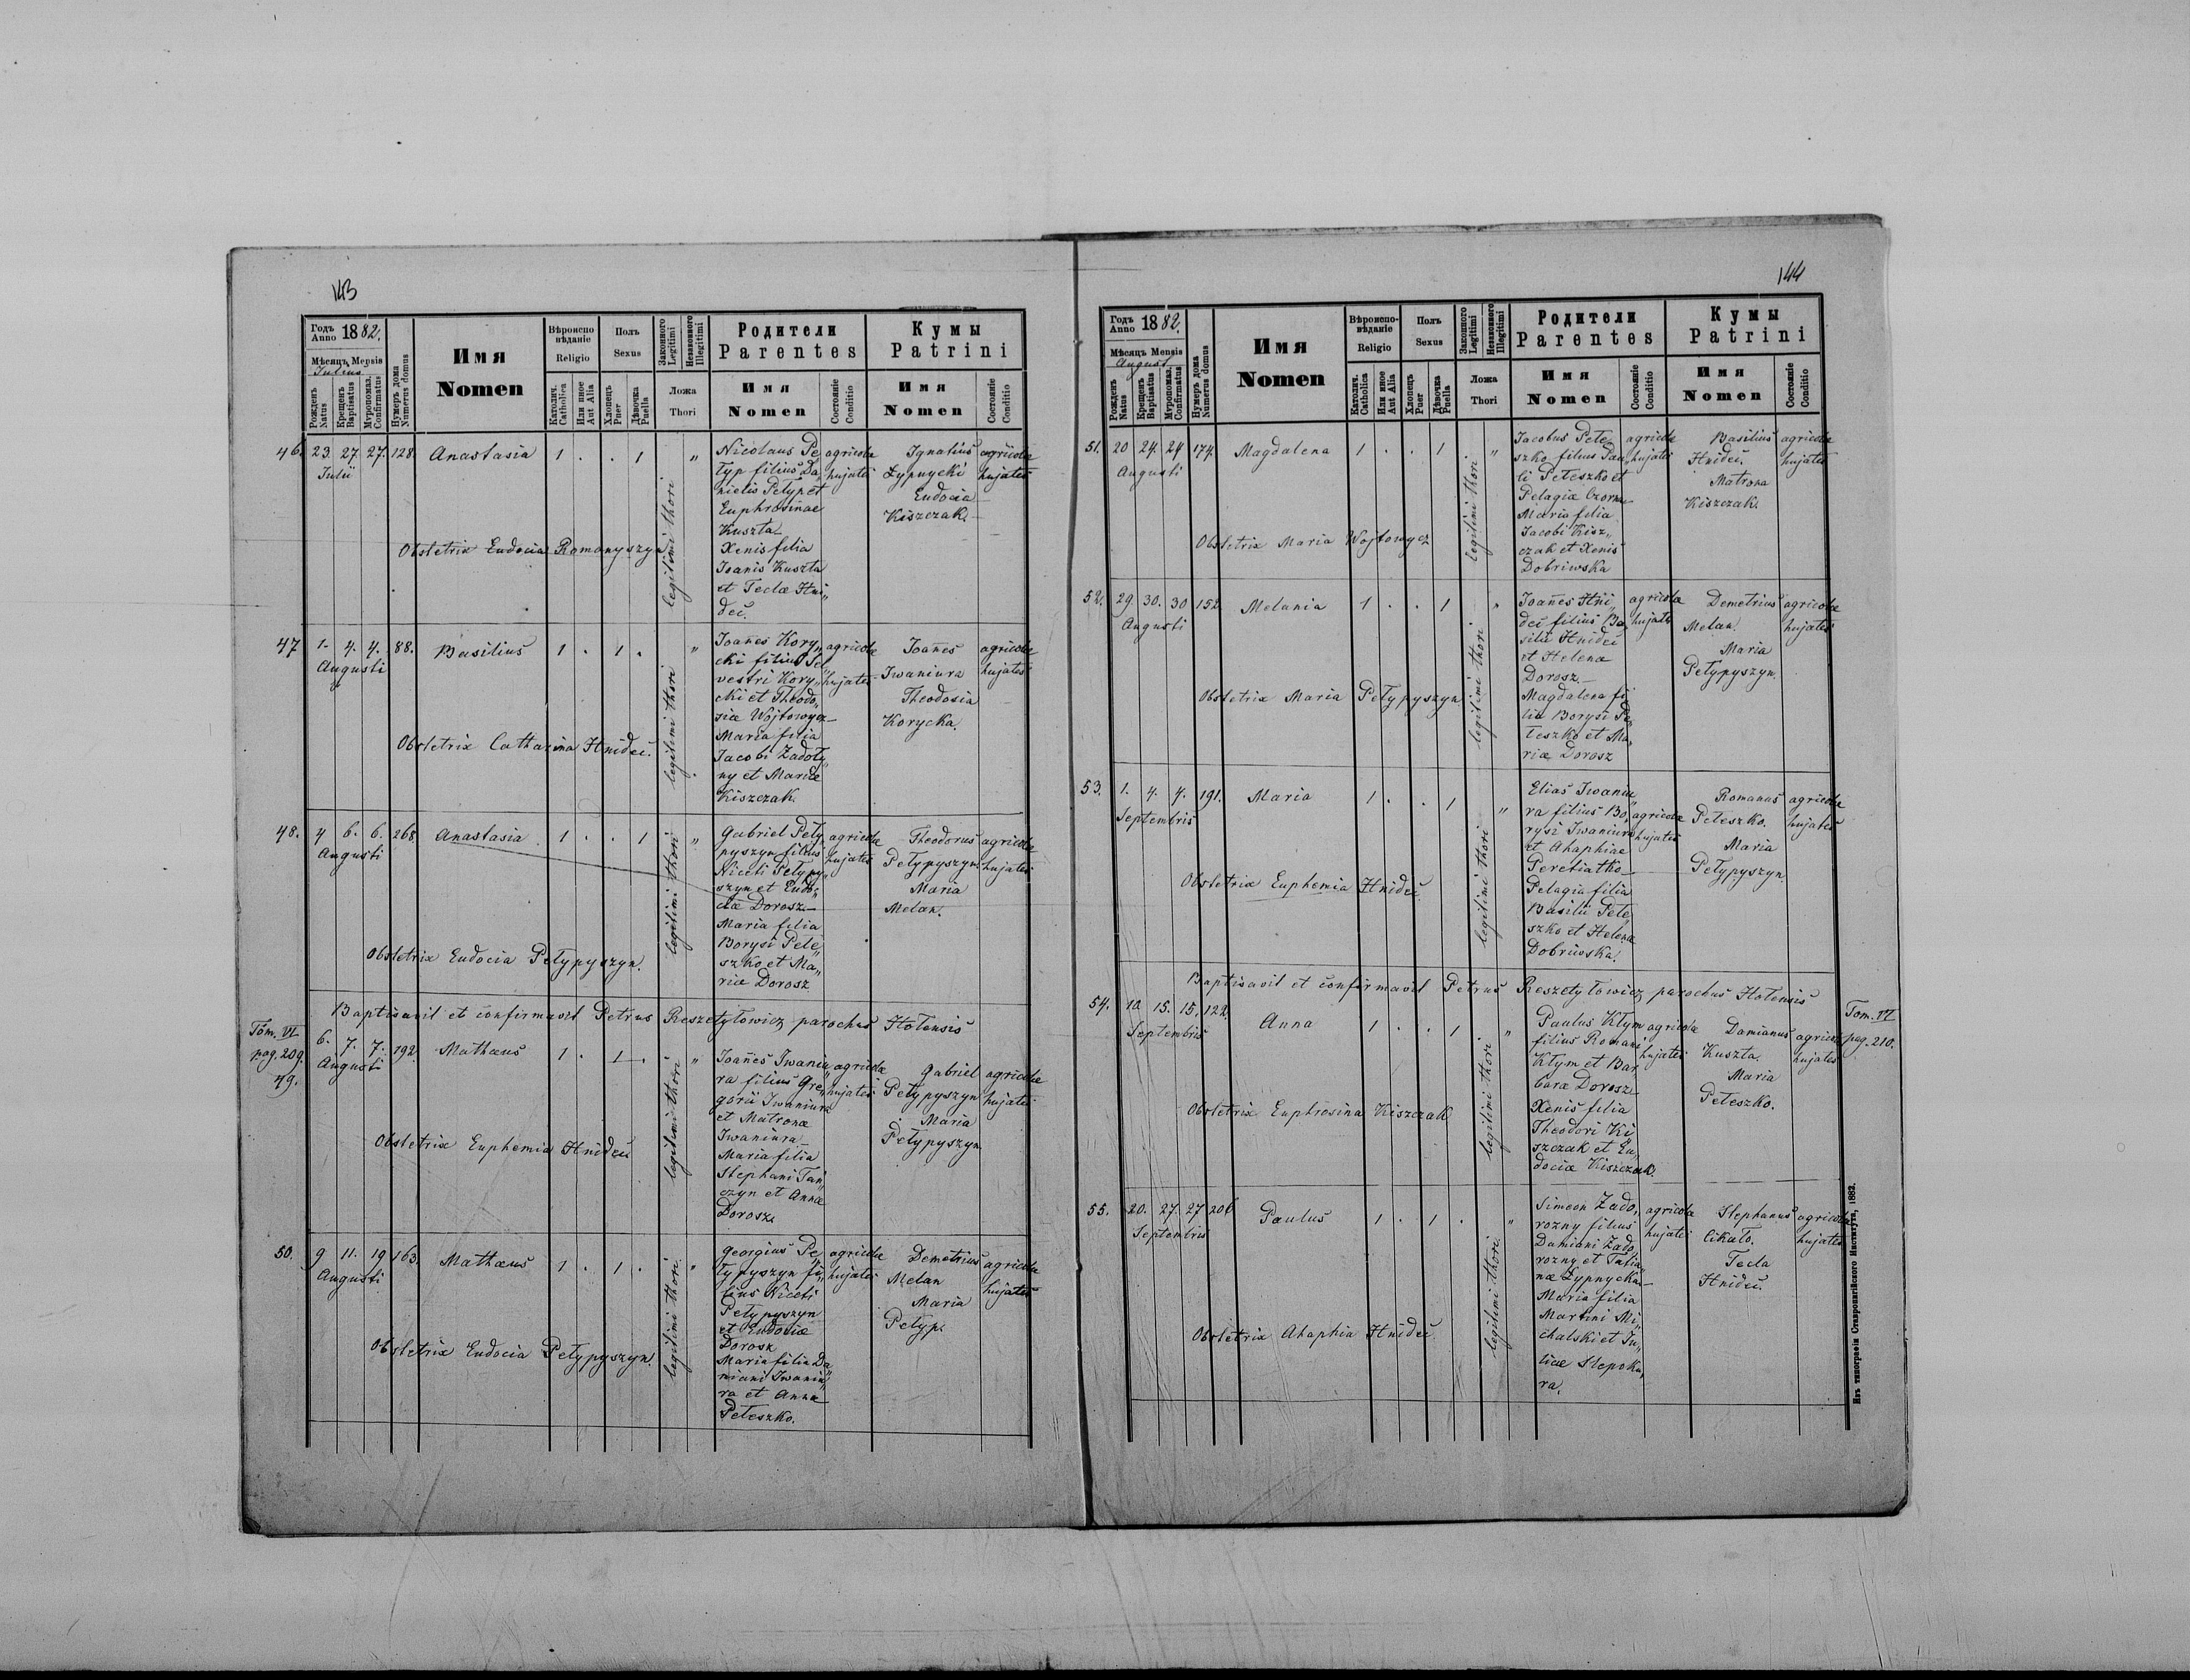 143
Годъ Anno 1882.
Мѣсяцъ Mensis
Julius
Рожденъ Natus
Крещенъ Baptisatus
Мѵропомаз. Confirmatus
Нумеръ дома Numerus domus
Имя
Nomen
Вѣроиспо
вѣданіе
Religio
Католич. Catholica
Или иное Aut Alia
Полъ
Sexus
Хлопецъ Puer
Дѣвочка Puella
Законного Legitimi
Незаконного Illegitimi
Ложа
Thori
Родители
Parentes
Имя
Nomen
Состояніе Conditio
Кумы
Patrini
Имя
Nomen
Состояніе Conditio
46. 23. 27. 27. 128. Anastasia 1 . . 1 "
Julii
legitimi thori
Nicolaus Pe
typ filius Da„
nielis Petyp et
Euphrosinae
Kuszta
Xenis filia
Joanis Kuszta
et Teclae Hni„
deć.
agricolae
hujates
Ignatius
Łypnycki
Eudocia
Kiszczak.
agricolae
hujates
Obstetrix Eudocia Romanyszyn
47 1. 4. 4. 88. Basilius 1 . 1 . "
Augusti
legitimi thori
Joannes Kory„
cki filius Sel„
vestri Kory„
cki et Theodo„
siae Wojtowycz
Maria filia
Jacobi Zadoły„
ny et Mariae
Kiszczak.
agricolae
hujates
Joannes
Iwaniura
Theodosia
Korycka.
agricolae
hujates
Obstetrix Catharina Hnideć.
48. 4 6. 6. 268. Anastasia 1 . . 1 "
Augusti
legitimi thori
Gabriel Pety„
pyszyn filius
Niceti Petypy„
szyn et Eudo„
ciae Dorosz.
Maria filia
Borysi Pete„
szko et Ma„
riae Dorosz
agricolae
hujates
Theodorus
Petypyszyn.
Maria
Melan.
agricolae
hujates
Obstetrix Eudocia Petypyszyn.
Baptisavit et confirmavit Petrus Reszetyłowicz parochus Hotensis
Tom. VI
pag. 209.
49. 6. 7. 7. 192. Mathaeus 1 . 1 . "
Augusti
legitimi thori
Joannes Iwaniu„
ra filius Gre„
gorii Iwaniura
et Matronae
Iwaniura
Maria filia
Stephani Tan„
czyn et Annae
Dorosz.
agricolae
hujates
Gabriel
Petypyszyn
Maria
Petypyszyn
agricolae
hujates
Obstetrix Euphemia Hnideć
50. 9 11. 19 163. Mathaeus 1 . 1 . "
Augusti
legitimi thori.
Georgius Pe„
typyszyn fi„
lius Niceti
Petypyszyn
et Eudociae
Dorosz
Maria filia Da„
miani Iwaniu„
ra et Annae
Peteszko.
agricolae
hujates
Demetrius
Melan
Maria
Petyp.
agricolae
hujates
Obstetrix Eudocia Petypyszyn.
144
Годъ Anno 1882.
Мѣсяцъ Mensis
August
Рожденъ Natus
Крещенъ Baptisatus
Мѵропомаз. Confirmatus
Нумеръ дома Numerus domus
Имя
Nomen
Вѣроиспо-
вѣданіе
Religio
Католич. Catholica
Или иное Aut Alia
Полъ
Sexus
Хлопецъ Puer
Дѣвочка Puella
Законного Legitimi
Незаконного Illegitimi
Ложа
Thori
Родители
Parentes
Имя
Nomen
Состояніе Conditio
Кумы
Patrini
Имя
Nomen
Состояніе Conditio
51. 20 24. 24 174. Magdalena 1 . . 1 "
Augusti
legitimi thori
Jacobus Pete„
szko filius Pau„
li Peteszko et
Pelagiae Czorna
Maria filia
Jacobi Kisz„
czak et Xenis
Dobriwska
agricolae
hujates
Basilius
Hnideć.
Matrona
Kiszczak.
agricolae
hujates
Obstetrix Maria Wojtowycz
52. 29. 30. 30 152. Melania 1 . . 1 "
Augusti
legitimi thori
Joannes Hni„
deć filius Ba„
silii Hnideć
et Helenae
Dorosz.
Magdalena fi
lia Borysi Pe„
teszko et Ma„
riae Dorosz
agricolae
hujates
Demetrius
Melan.
Maria
Petypyszyn.
agricolae
hujates
Obstetrix Maria Petypyszyn
53. 1. 4. 4. 191. Maria 1 . . 1 "
Septembris
legitimi thori
Elias Iwaniu„
ra filius Bo„
rysi Iwaniura
et Ahaphiae
Peretiatko
Pelagia filia
Basilii Pete„
szko et Helenae
Dobriwska.
agricolae
hujates
Romanus
Peteszko.
Maria
Petypyszyn.
agricolae
hujates
Obstetrix Euphemia Hnideć.
Baptisavit et confirmavit Petrus Reszetyłowicz parochus Hotensis
Tom. VI
pag. 210.
54. 10. 15. 15. 122. Anna 1 . . 1 "
Septembris
legitimi thori
Paulus Kłym
filius Romani
Kłym et Bar
barae Dorosz
Xenis filia
Theodori Ki„
szczak et Eu„
dociae Kiszczak.
agricolae
hujates
Damianus
Kuszta.
Maria
Peteszko.
agricolae
hujates
Obstetrix Euphrosina Kiszczak
55. 20. 27. 27 206 Paulus 1 . 1 . "
Septembris
legitimi thori.
Simeon Zado„
rozny filius
Damiani Zado„
rozny et Tatia„
nae Łypnycka
Maria filia
Martini Mi„
chalski et Ju„
liae Slepoku„
ra.
agricolae
hujates
Stephanus
Cikało.
Tecla
Hnideć.
agricolae
hujates
Obstetrix Ahaphia Hnideć.
Изъ типографіи Ставропигійского Института, 1882.